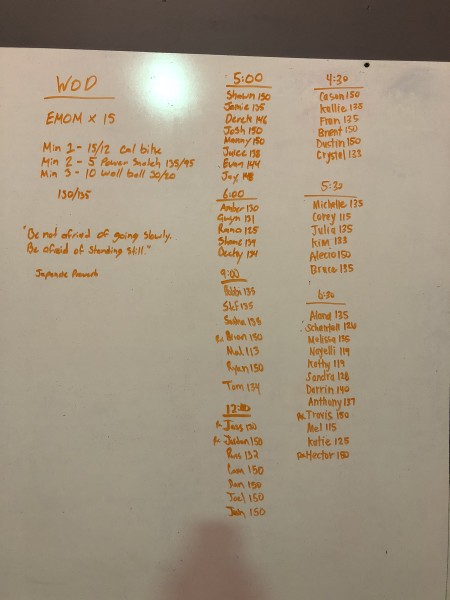 WOD
EMOM x 15
Min 1 - 15/12 Cal bike
Min 2 - 5 Power Snatch 135/95
Min 3 - 10 wall ball 30/20
150/135
"Be not afraid of going slowly.
Be afraid of standing still."
Japanese Proverb
5:00
Shawn 150
Jamie 135
Derek 146
Josh 150
Manny 150
Juice 138
Evan 144
Jay 148
6:00
Amber 130
131
Ramo 125
Shane 139
Decky 134
9:00
Bobbi 135
Stef 135
135
Rx Brian 150
Mal 113
Ryan 150
Tom 134
12:00
Rx Jass 120
Rx 150
Russ 132
150
Dan 150
Joel 150
150
4:30
Cason 150
Kallie 135
Fran 135
Brent 150
Dustin 150
Crystal 133
5:30
Michelle 135
Corey 115
Julia 125
Kim 133
Alecio 150
Bruce 135
6:30
Alana 135
126
Melissa 135
Nayelli 119
Kathy 119
Sandra 128
Darrin 140
Anthony 137
Rx Travis 150
Mel 115
Katie 125
Rx Hector 150